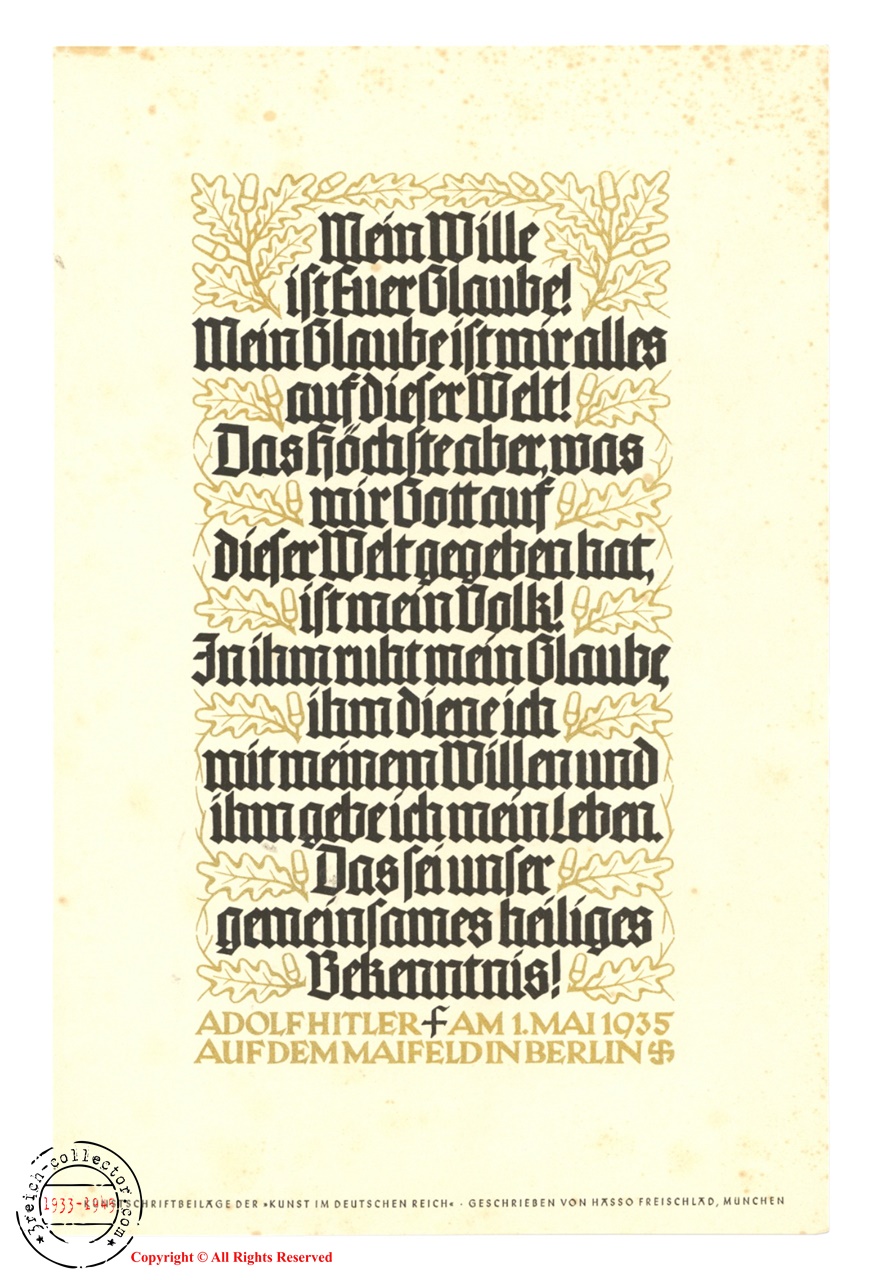 Mein Wille
ist Euer Glaube!
Mein Glaube ist mir alles
auf dieser Welt!
Das Höchste aber, was
mir Gott auf
dieser Welt gegeben hat,
ist mein Volk!
In ihm ruht mein Glaube,
ihm diene ich
mit meinem Willen und
ihm gebe ich mein Leben.
Das sei unser
gemeinsames heiliges
Bekenntnis!
ADOLF HITLER AM 1. MAI 1935
AUF DEM MAIFELD IN BERLIN
SCHRIFTBEILAGE DER »KUNST IM DEUTSCHEN REICH« · GESCHRIEBEN VON HASSO FREISCHLAD, MÜNCHEN
3reich-collector.com
1933-1945
Copyright © All Rights Reserved